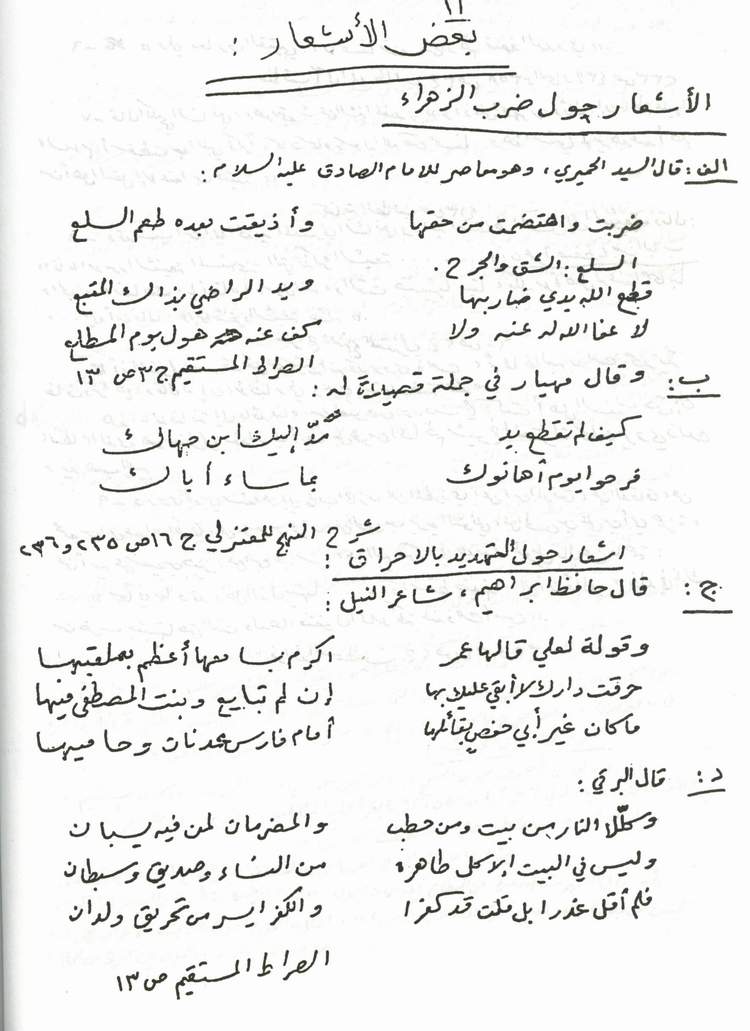 ١١
بعض الأشعار :
الأشعار حول ضرب الزهراء
الف : قال السيد الحميري ، وهو معاصر للامام الصادق عليه السلام :
ضربت واهتضمت من حقها وأذيقت بعده طعم السلع
السلع : الشق والجرح .
قطع الله يدي ضاربها ويد الراضي بذاك المتبع
لا عفا الاله عنه ولا كف عنه هول يوم المطلع
الصراط المستقيم ج ٣ ص ١٣
ب : وقال مهيار في جملة قصيدة له :
كيف لم تقطع يد مدّ إليك ابن صهاك
فرحوا يوم أهانوك بما ساء أباك
شرح النهج للمعتزلي ج ١٦ ص ٢٣٥ و ٢٣٦
اشعار حول التهديد بالاحراق :
ج : قال حافظ ابراهيم ، شاعر النيل :
وقولة لعلي قالها عمر اكرم بسامعها أعظم بملقيها
حرقت دارك لا أبقي عليك بها إن لم تبايع وبنت المصطفى فيها
ما كان غير أبي حفص بقائلها أمام فارس عدنان وحاميها
د : قال البرقي :
وكلّلا النار من بيت ومن حطب والمضرمان لمن فيه يسبان
وليس في البيت إلا كل طاهرة من النساء وصديق وسبطان
فلم أقل غدرا بل قلت قد كفرا والكفر أيسر من تحريق ولدان
الصراط المستقيم ص ١٣